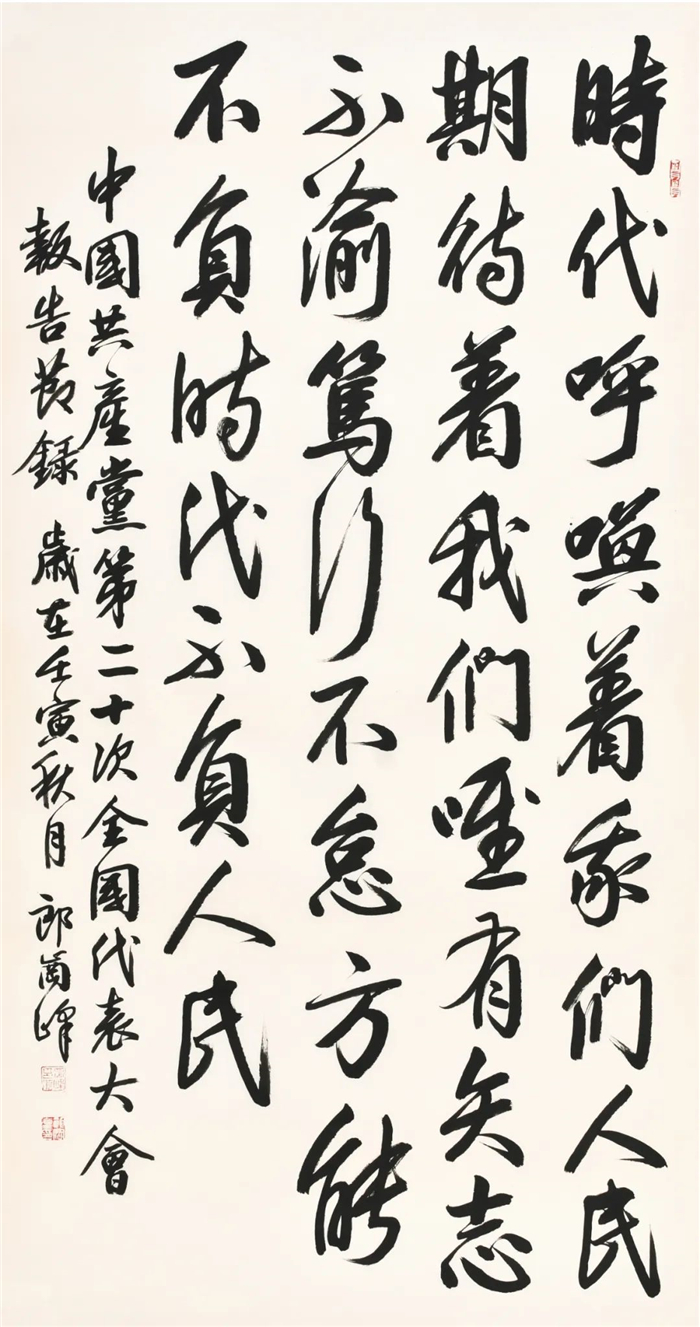 時代呼喚着我們人民
期待着我們唯有矢志
不渝篤行不怠方能
不負時代不負人民
中國共產黨第二十次全國代表大會
報告節錄 歲在壬寅秋月 郎峰